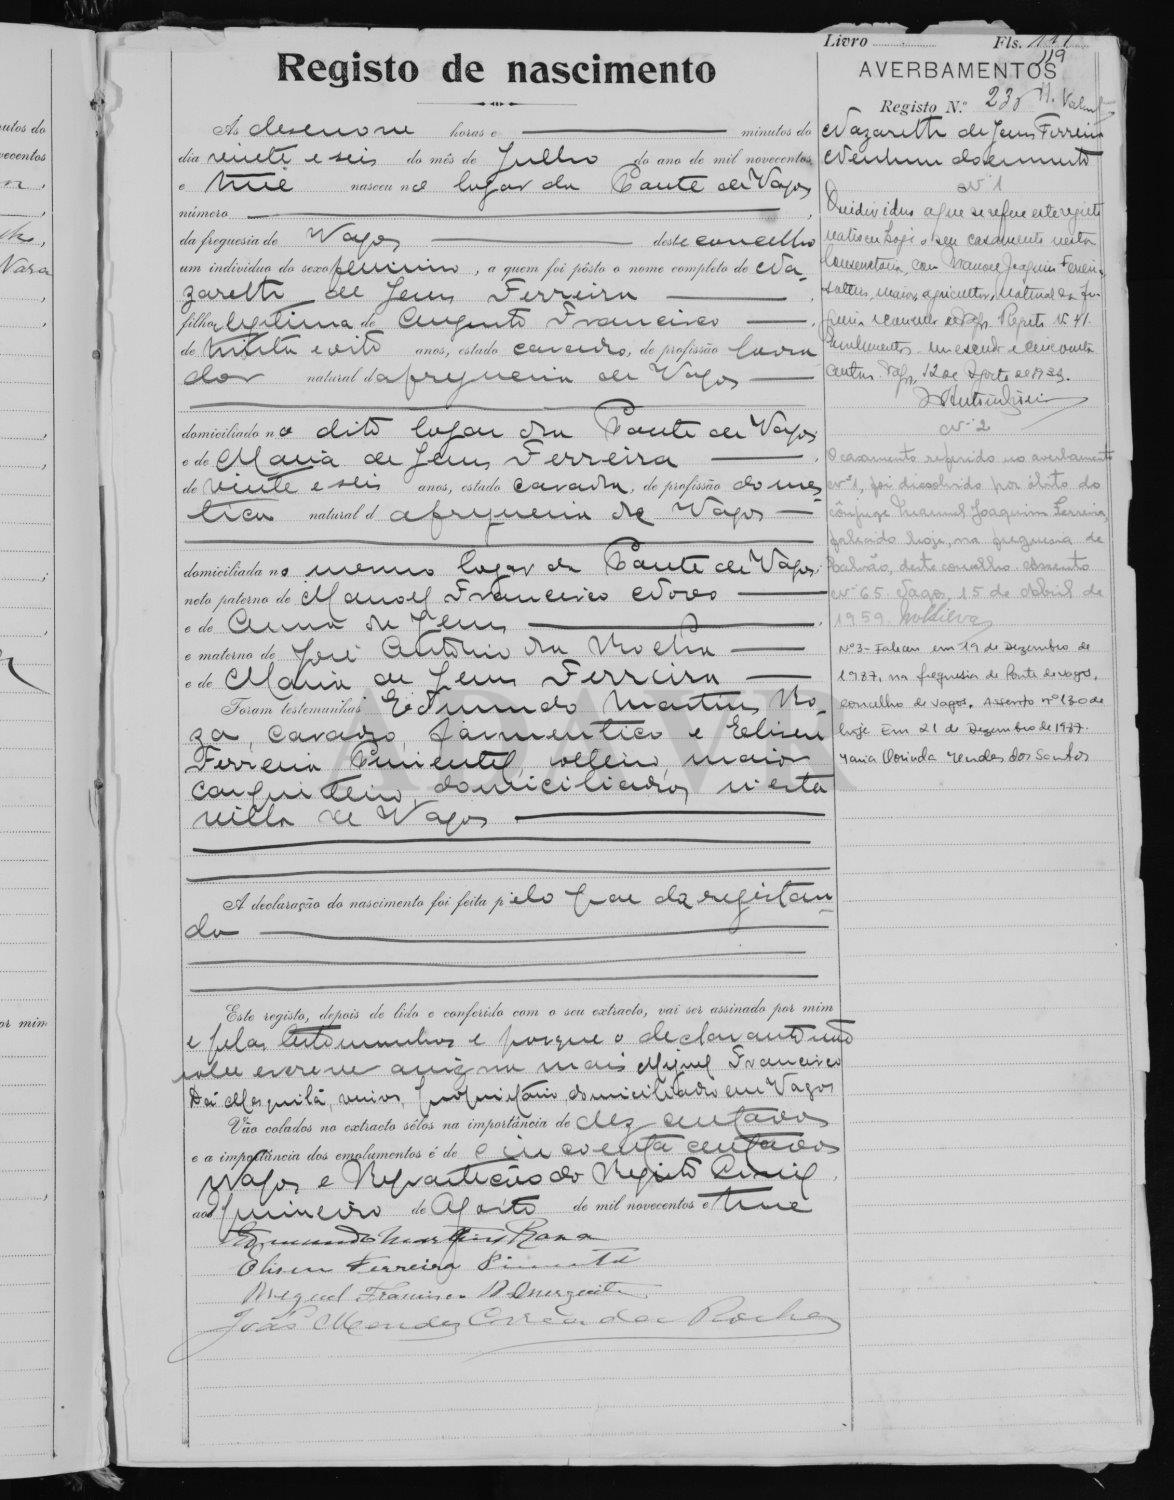 Livro Fls. 119
Registo de nascimento
AVERBAMENTOS
Registo N.º 235
Ás desenove horas e minutos do
dia vinte e seis do mês de Julho do ano de mil novecentos
e nasceu no lugar da Ponte de Vagos
número
da freguesia de Vagos deste concelho
um individuo do sexo feminino, a quem foi pôsto o nome completo de Na-
zareth de Jesus Ferreira
filha legitima de Augusto Francisco
de trinta e oito anos, estado casado, de profissão lavra
dor natural da freguesia de Vagos
domiciliado no dito lugar da Ponte de Vagos
e de Maria de Jesus Ferreira
de vinte e seis anos, estado casada, de profissão domes-
tica natural da freguesia de Vagos
domiciliada no mesmo lugar da Ponte de Vagos
neto paterno de Manoel Francisco Novo
e de Anna de Jesus
e materno de José Antonio da Rocha
e de Maria de Jesus Ferreira
Foram testemunhas Edmundo Martins Ro-
za, casado, e Eliseu
Ferreira Pimentel, solteiro, maior
domiciliados n'esta
villa de Vagos
A declaração do nascimento foi feita pelo pae da registan-
da
Este registo, depois de lido e conferido com o seu extracto, vai ser assinado por mim
e pelas testemunhas e porque o declarante não
sabe escrever assigna mais Miguel Francisco
viuvo, proprietario domiciliado em Vagos
Vão colados no extracto sêlos na importância de dez centavos
e a importância dos emolumentos é de cincoenta centavos
Vagos e Repartição do Registo Civil,
aos primeiro de Agosto de mil novecentos e
Edmundo Martins Roza
Eliseu Ferreira Pimentel
Miguel Francisco
João Mendes Correia da Rocha
Nazareth de Jesus Ferreira
Nenhum documento
Nº 1
O individuo a que se refere este registo
o seu casamento nesta
Conservatória, com Manoel Joaquim Ferreira
solteiro, maior, agricultor, natural da fre
Registo Nº 41.
Emolumentos um escudo e cincoenta
centavos. 12 de Agosto de 1933.
Nº 2
O casamento referido no averbamento
nº 1, foi dissolvido por óbito do
cônjuge Manuel Joaquim Ferreira,
falecido hoje, na freguesia de
Calvão, deste concelho. Assento
nº 65. Vagos, 15 de Abril de
1959.
Nº3- Faleceu em 19 de Dezembro de
1987, na freguesia de Ponte de Vagos,
concelho de Vagos. Assento nº 130 de
hoje. Em 21 de Dezembro de 1987.
Maria Dorinda Mendes dos Santos
ADAVR